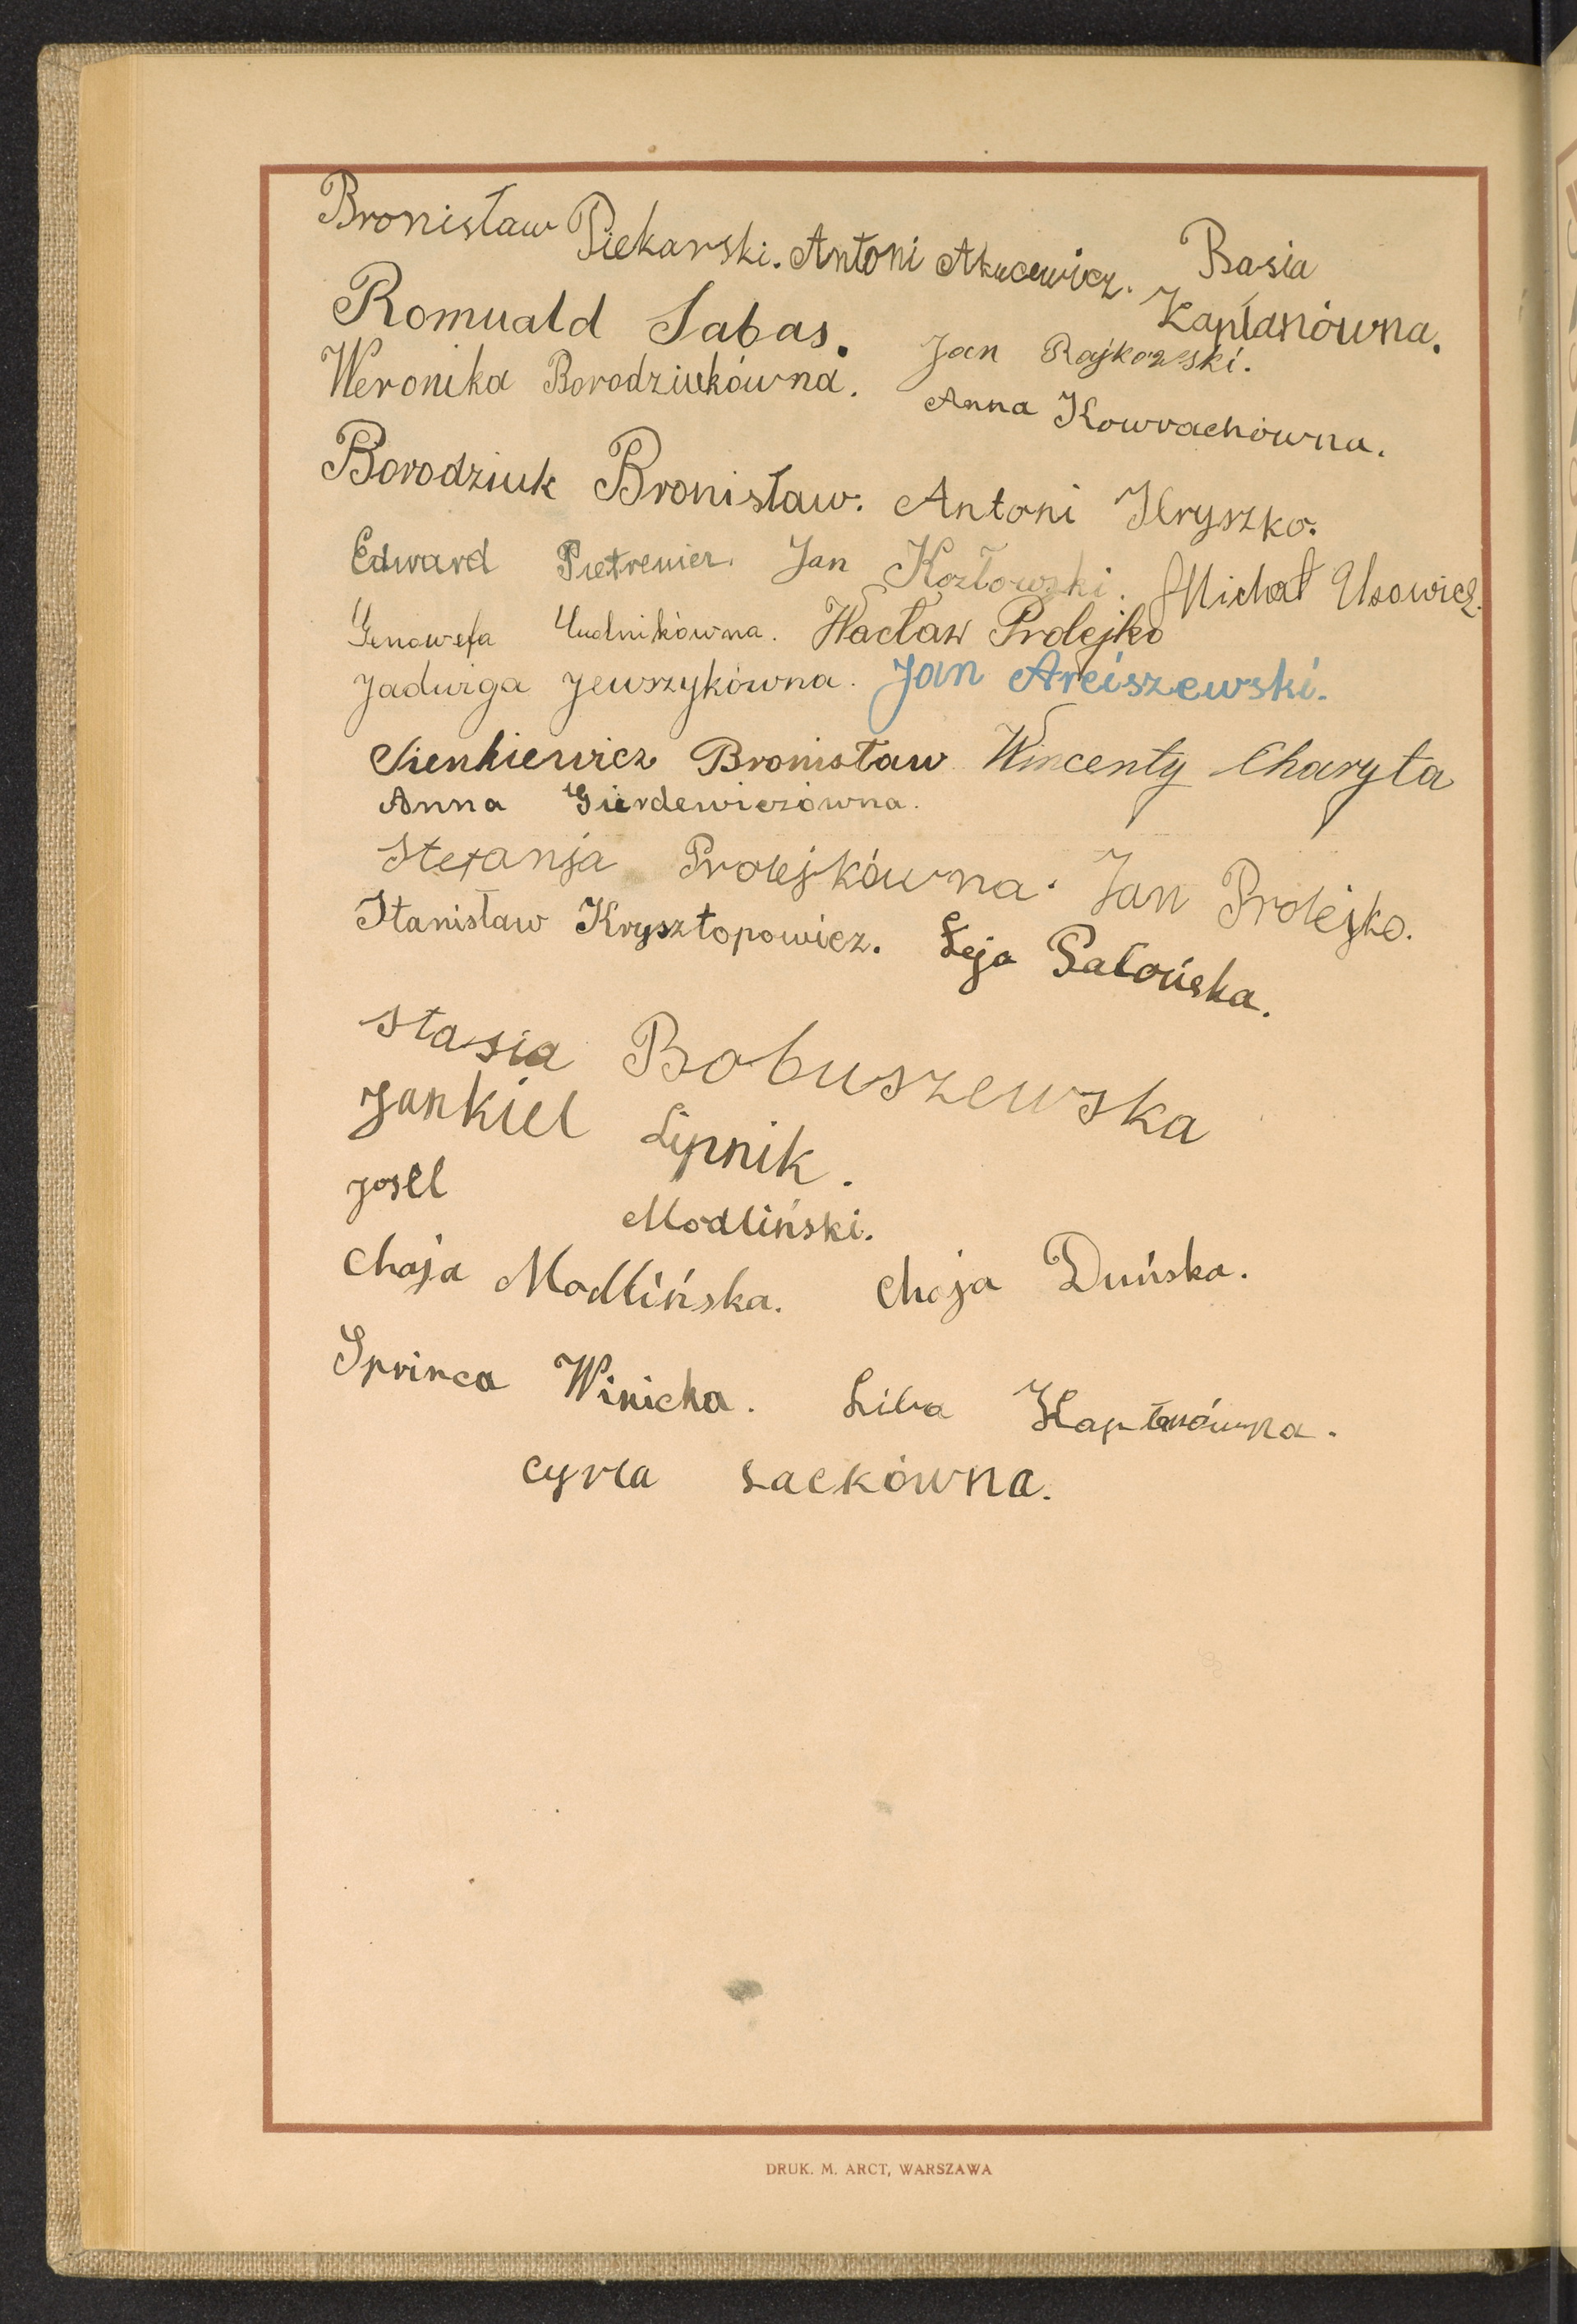 Bronisław Piekarski. Antoni Akucewicz. Basia Kapłanówna.
Romuald Sabas. Jan Rajkowski.
Weronika Borodziukówna. Anna Kowrachówna.
Borodziuk Bronisław. Antoni Hryszko.
Edward Pietrewicz. Jan Kozłowski. Michał Usowicz.
Genowefa Wacław Prolejko
Jadwiga Jewszykówna. Jan Arciszewski.
Sienkiewicz Bronisław Wincenty Charyta
Anna Gierdewiczówna.
Stefanja Prolejkówna. Jan Prolejko.
Stanisław Krysztopowicz. Leja Pałońska.
Stasia Bobuszewska
Jankiel Lipnik.
Josel Modliński.
Chaja Modlińska. Chaja Duńska.
Sprinca Winicka. Liba Kapłanówna.
Cyrla Sackówna.
DRUK. M. ARCT, WARSZAWA